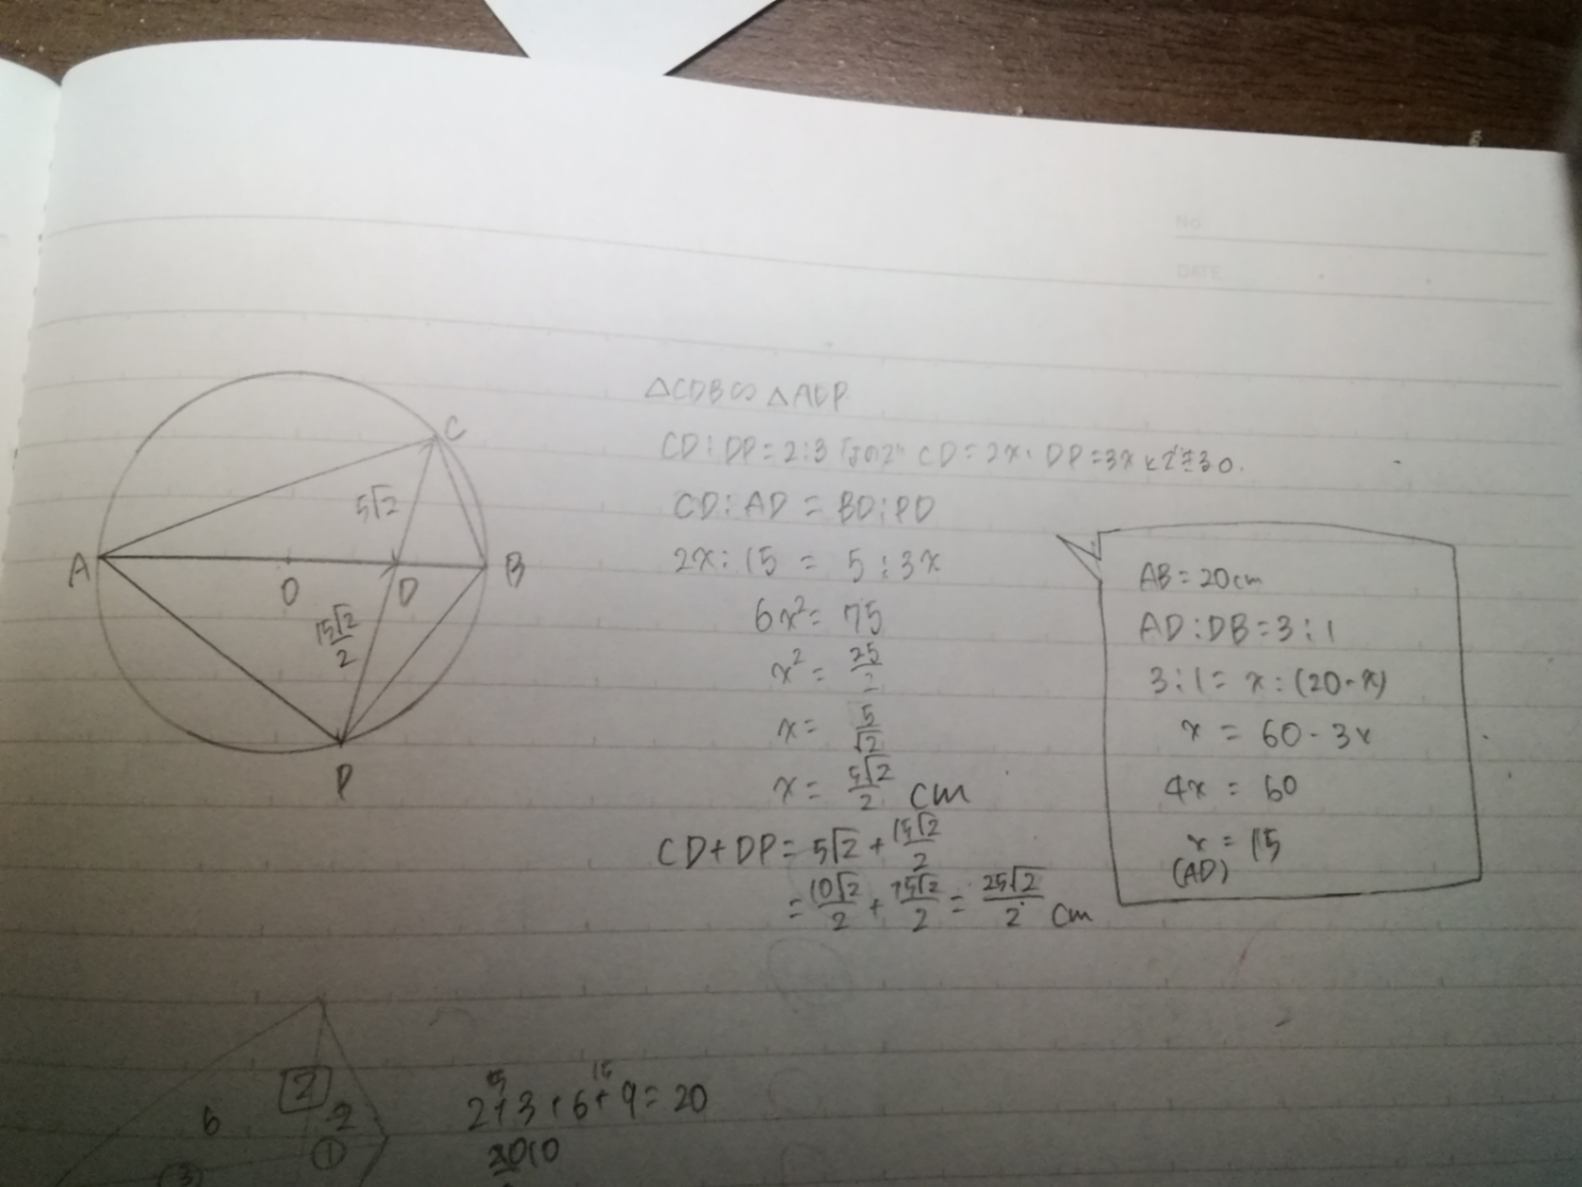 No.
DATE
C
5√2
A
O
D
B
15√2/2
P
△CDB∽△ADP
CD:DP=2:3なので CD=2x, DP=3xとする.
CD:AD=BD:PD
2x:15=5:3x
6x²=75
x²=25/2
x=5/√2
x=5√2/2 cm
CD+DP=5√2+15√2/2
=10√2/2+15√2/2=25√2/2 cm
AB=20cm
AD:DB=3:1
3:1=x:(20-x)
x=60-3x
4x=60
x=15
(AD)
6
2
2
①
③
5 15
2+3+6+9=20